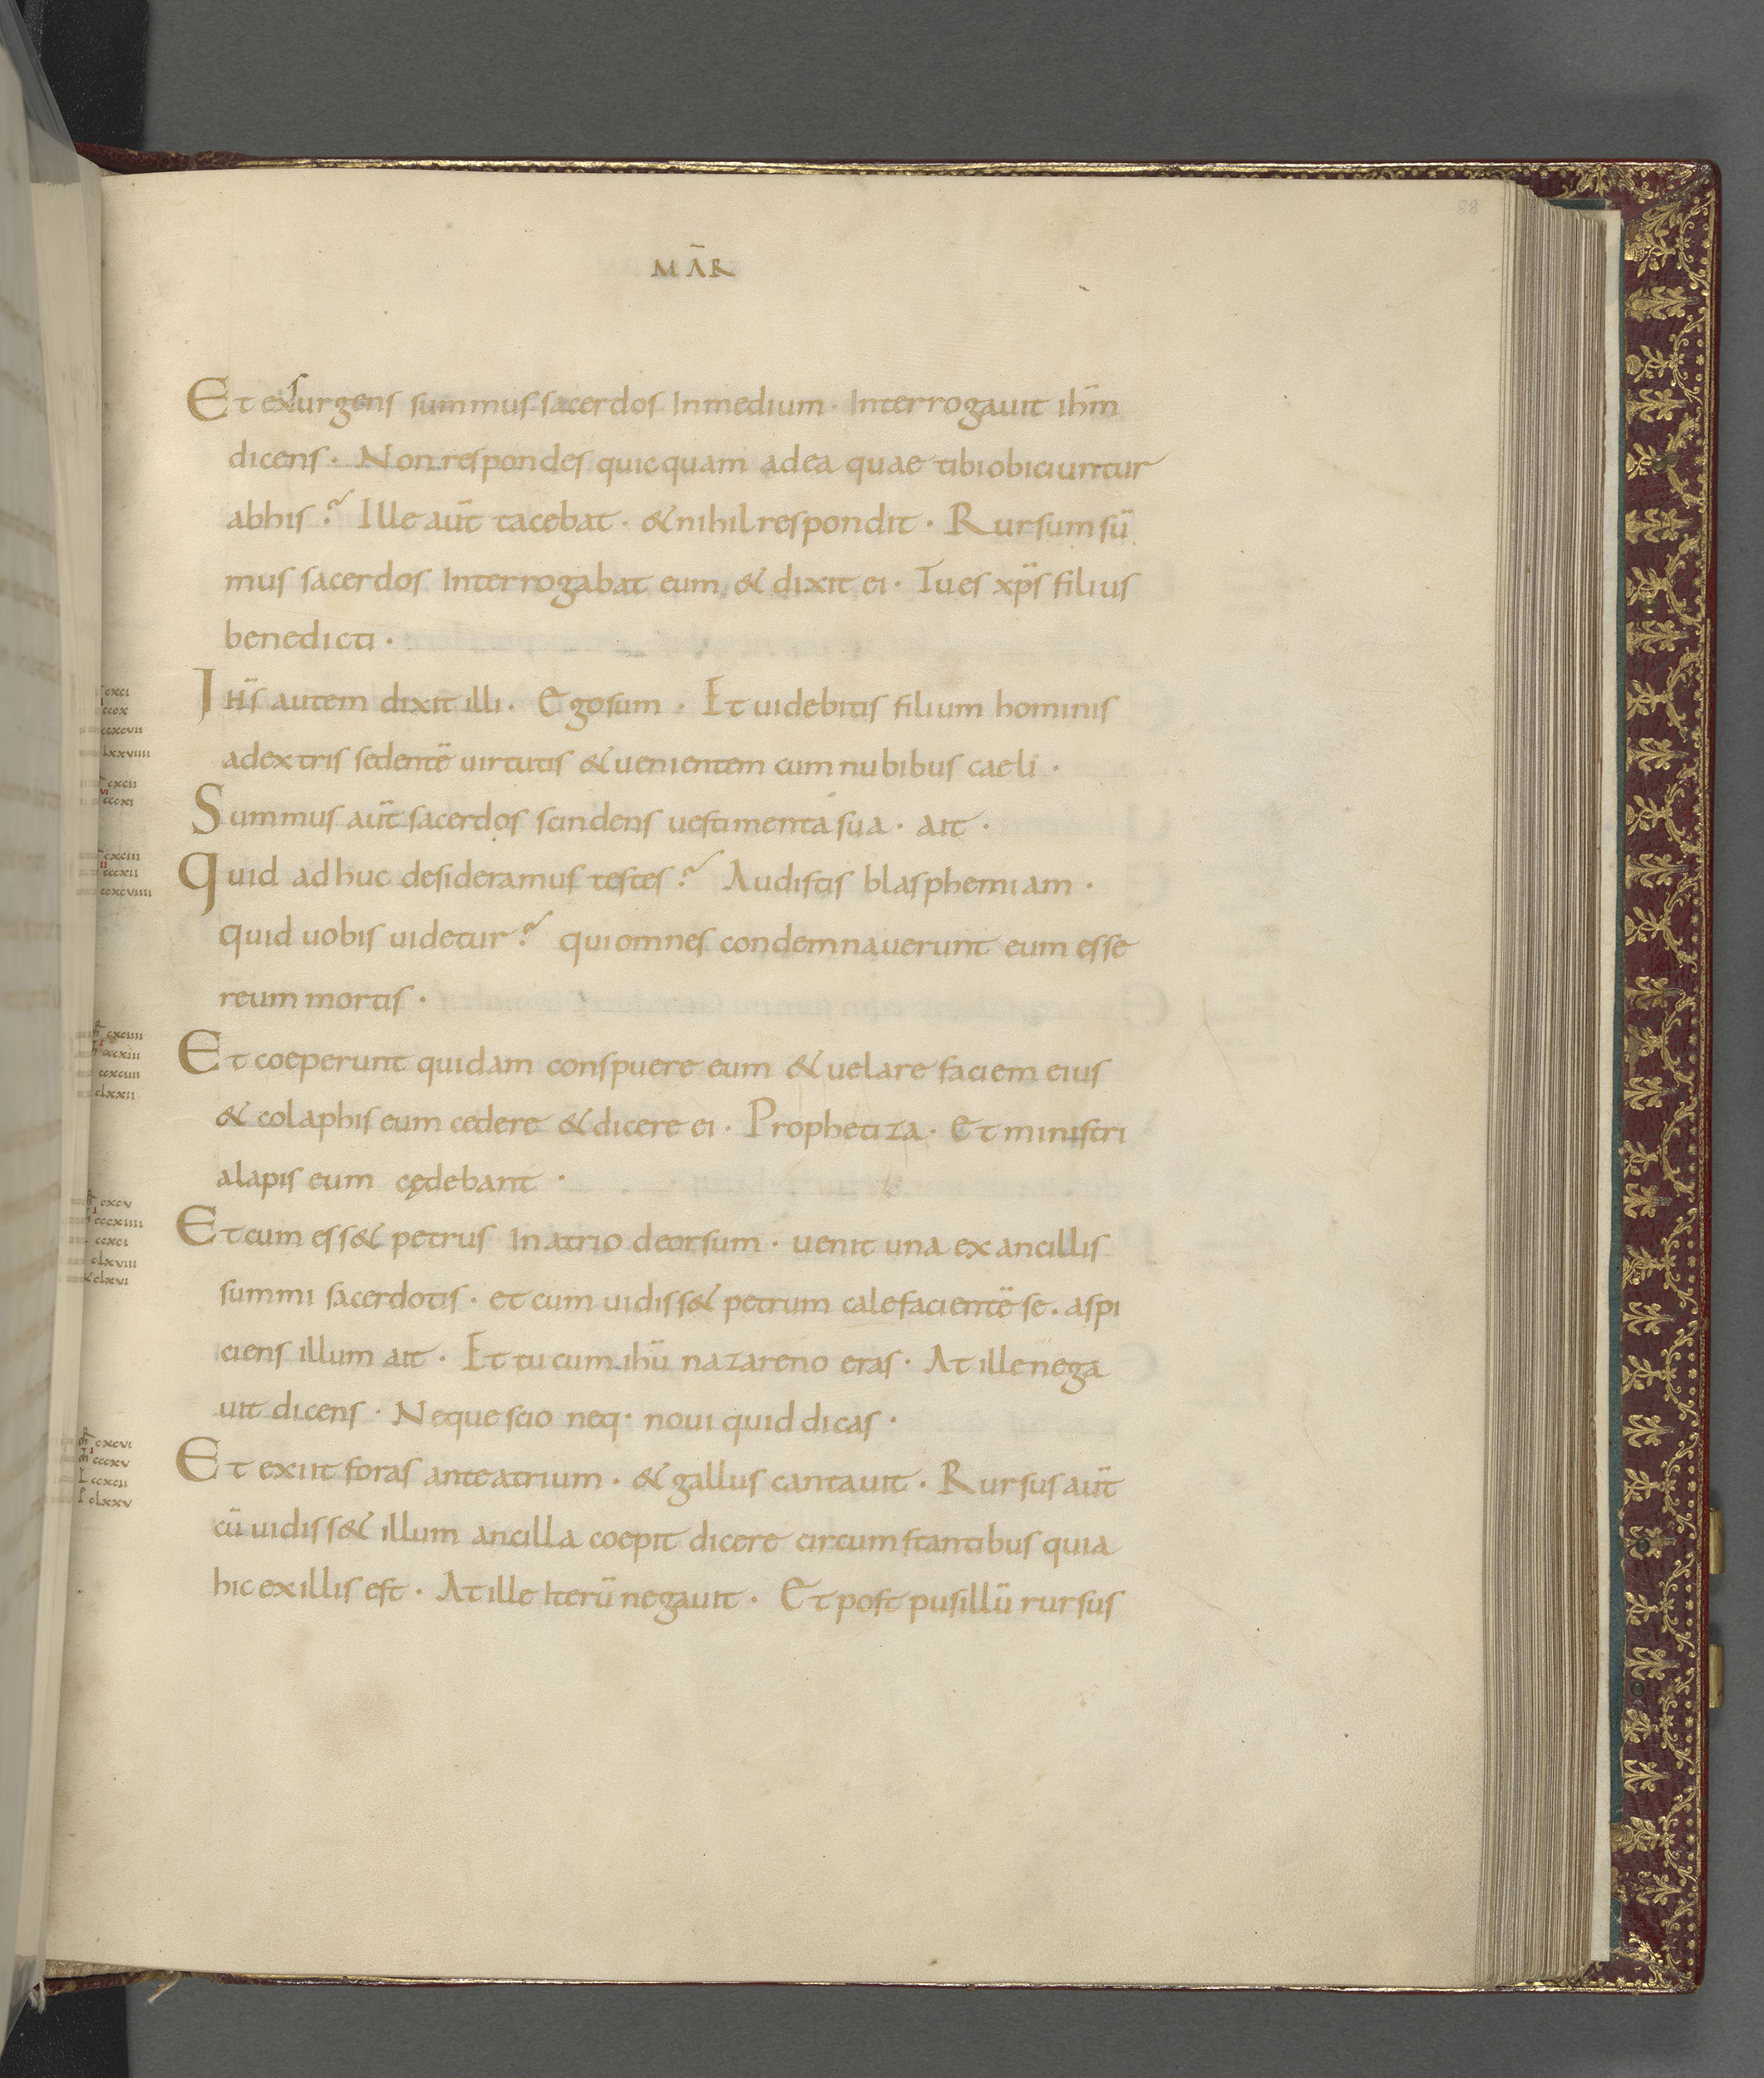 88
MĀR
Et exsurgens summus sacerdos Inmedium · Interrogauit ihm̄
dicens · Non respondes quicquam adea quae tibi obiciuntur
abhis? Ille aut̄ tacebat · & nihil respondit · Rursum sū
mus sacerdos Interrogabat eum & dixit ei · Tu es xp̄s filius
benedicti ·
Ih̄s autem dixit illi · Ego sum · Et uidebitis filium hominis
adextris sedentē uirtutis & uenientem cum nubibus caeli ·
Summus aut̄ sacerdos scindens uestimenta sua · ait ·
Quid adhuc desideramus testes? Audistis blasphemiam ·
quid uobis uidetur? qui omnes condemnauerunt eum esse
reum mortis ·
Et coeperunt quidam conspuere eum & uelare faciem eius
& colaphis eum cedere & dicere ei · Prophetiza · Et ministri
alapis eum cędebant ·
Et cum ess& petrus In atrio deorsum · uenit una ex ancillis
summi sacerdotis · et cum uidiss& petrum calefacientē se . aspi
ciens illum ait · Et tu cum ihū nazareno eras · At ille nega
uit dicens · Neque scio neq· noui quid dicas ·
Et exiit foras ante atrium · & gallus cantauit · Rursus aut̄
cū uidiss& illum ancilla coepit dicere circumstantibus quia
hic ex illis est · At ille Iterū negauit · Et post pusillū rursus